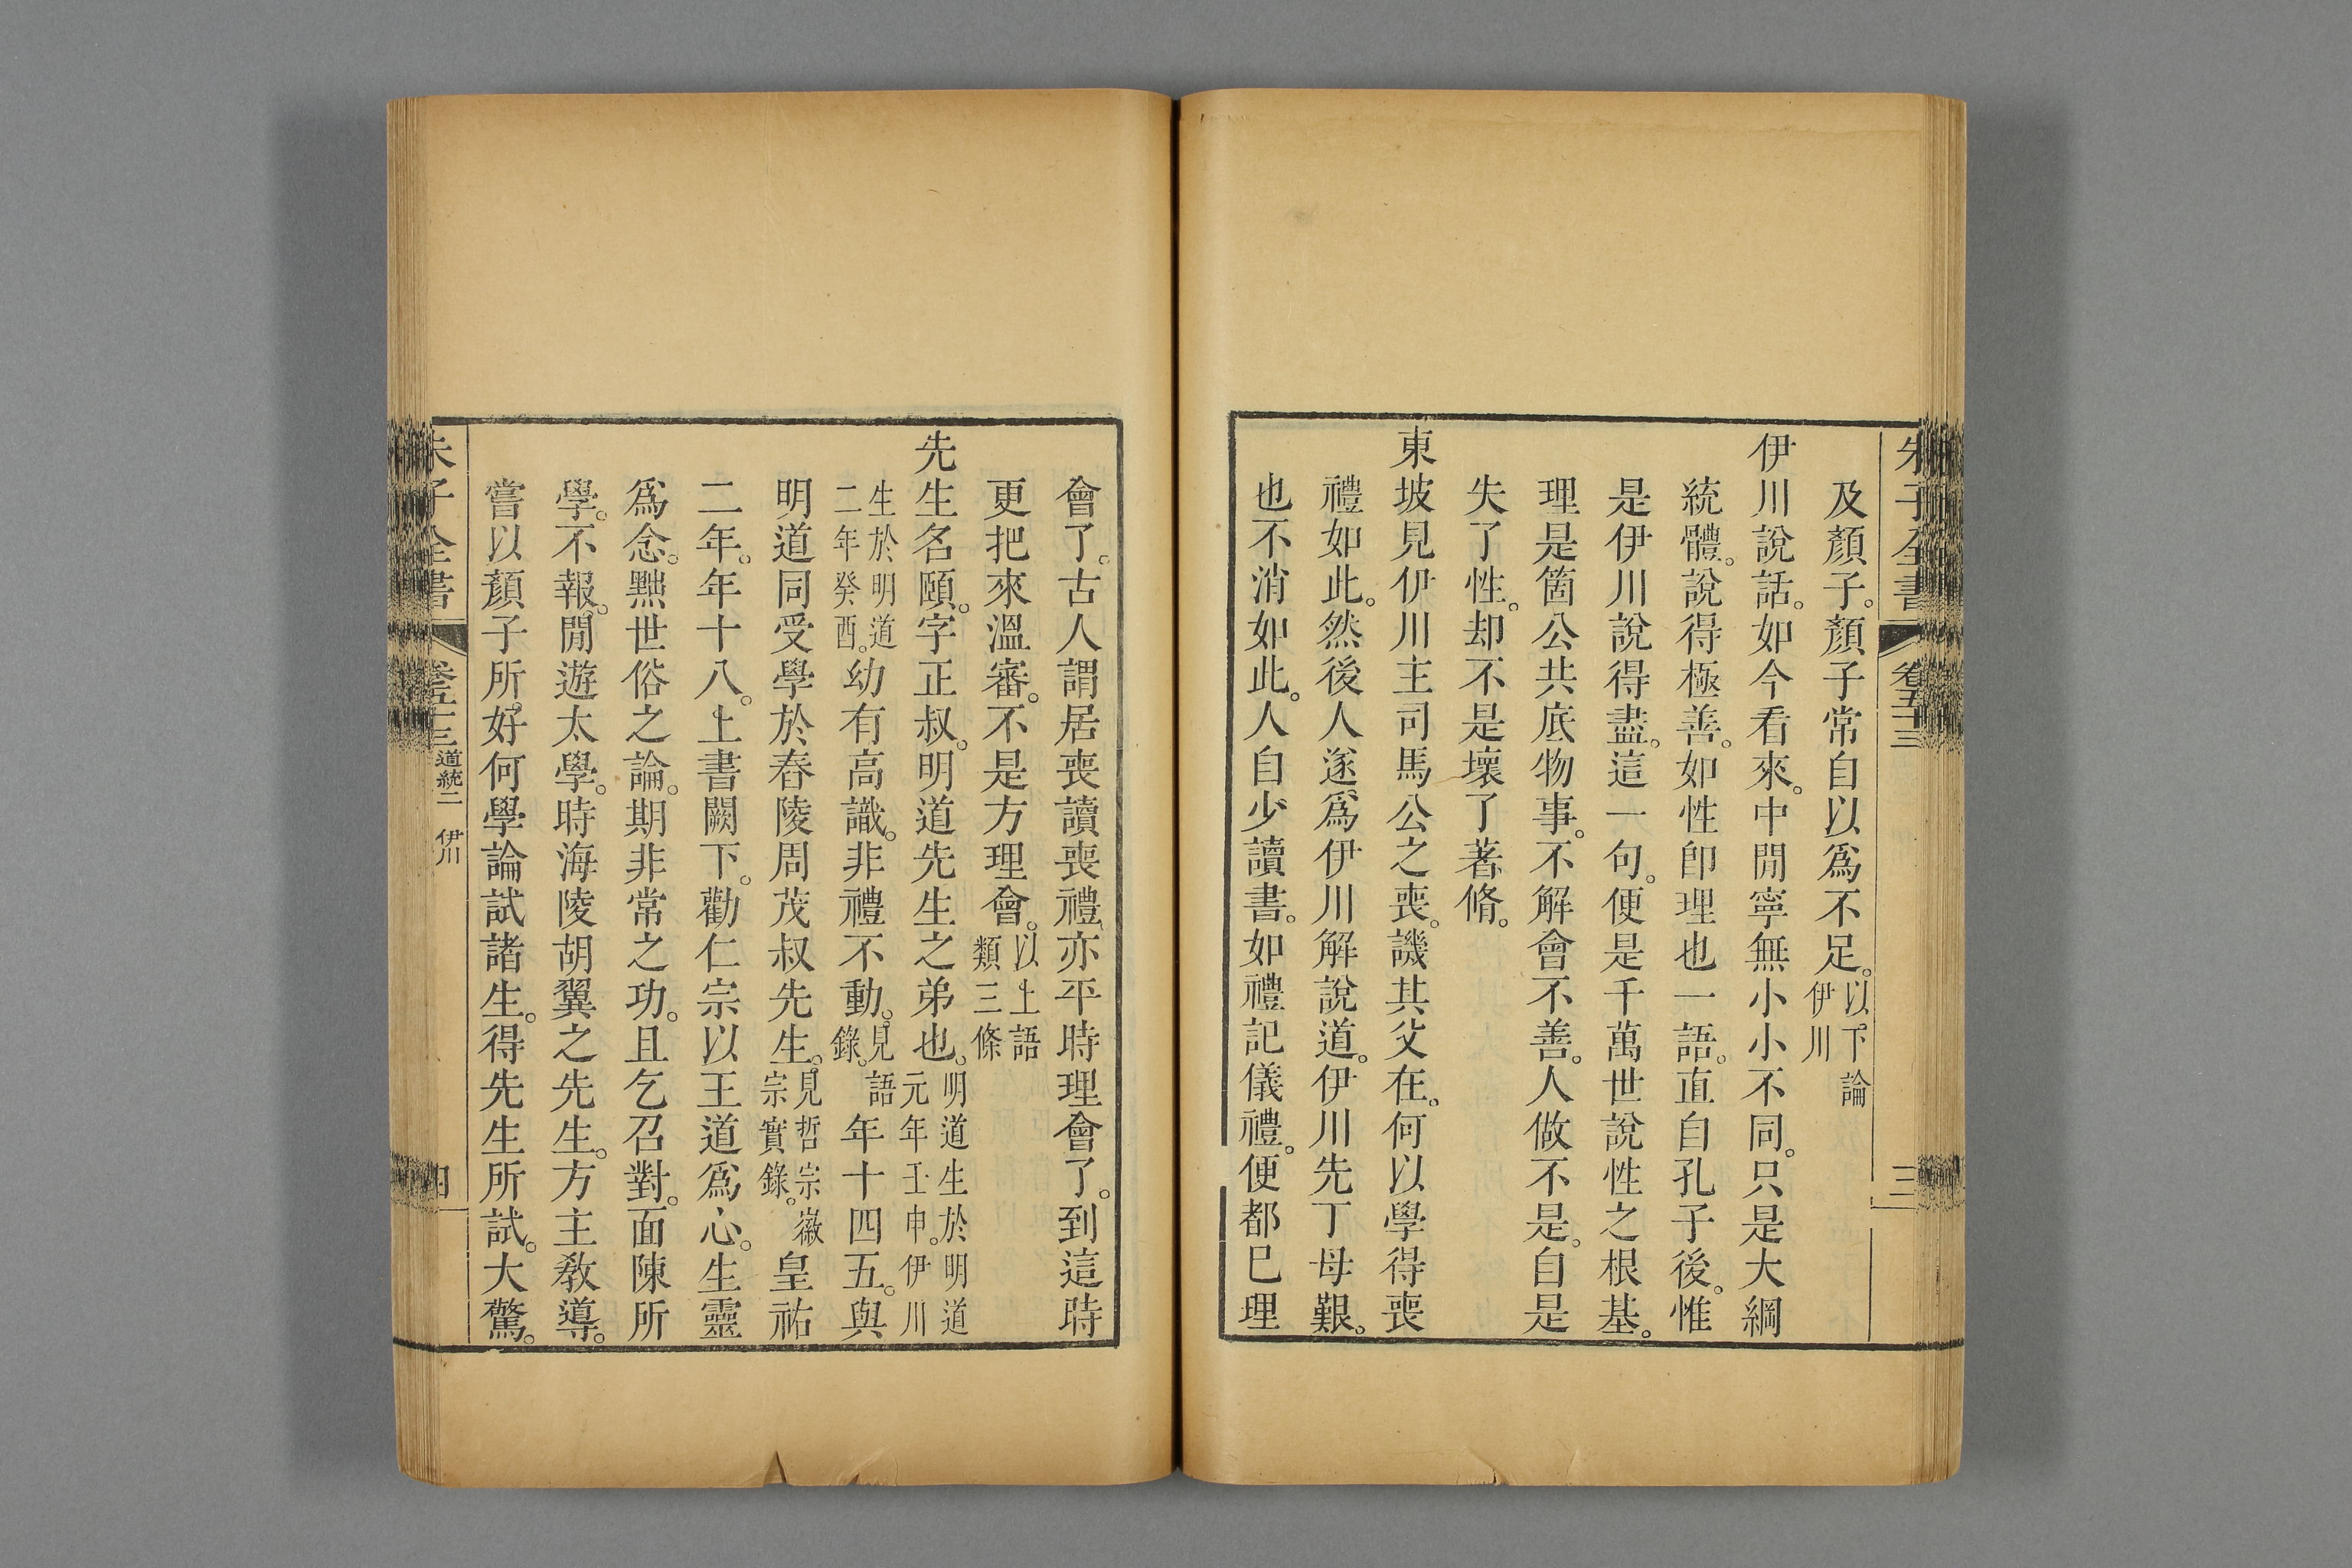 朱子全書 卷五十三 三
及顏子。顏子常自以爲不足。以下論伊川
伊川說話。如今看來。中閒寧無小小不同。只是大綱
統體。說得極善。如性卽理也一語。直自孔子後。惟
是伊川說得盡。這一句。便是千萬世說性之根基。
理是箇公共底物事。不解會不善。人做不是。自是
失了性。却不是壞了著脩。
東坡見伊川主司馬公之喪。譏其父在。何以學得喪
禮如此。然後人遂爲伊川解說道。伊川先丁母艱。
也不消如此。人自少讀書。如禮記儀禮。便都已理
會了。古人謂居喪讀喪禮。亦平時理會了。到這時
更把來溫審。不是方理會。以上語類三條
先生名頤。字正叔。明道先生之弟也。明道生於明道元年壬申。伊川
生於明道二年癸酉。幼有高識。非禮不動。見語錄。年十四五。與
明道同受學於舂陵周茂叔先生。見哲宗徽宗實錄。皇祐
二年。年十八。上書闕下。勸仁宗以王道爲心。生靈
爲念。黜世俗之論。期非常之功。且乞召對。面陳所
學。不報。閒遊太學。時海陵胡翼之先生。方主敎導。
嘗以顏子所好何學論試諸生。得先生所試。大驚。
朱子全書 卷五十三 道統二 伊川 四